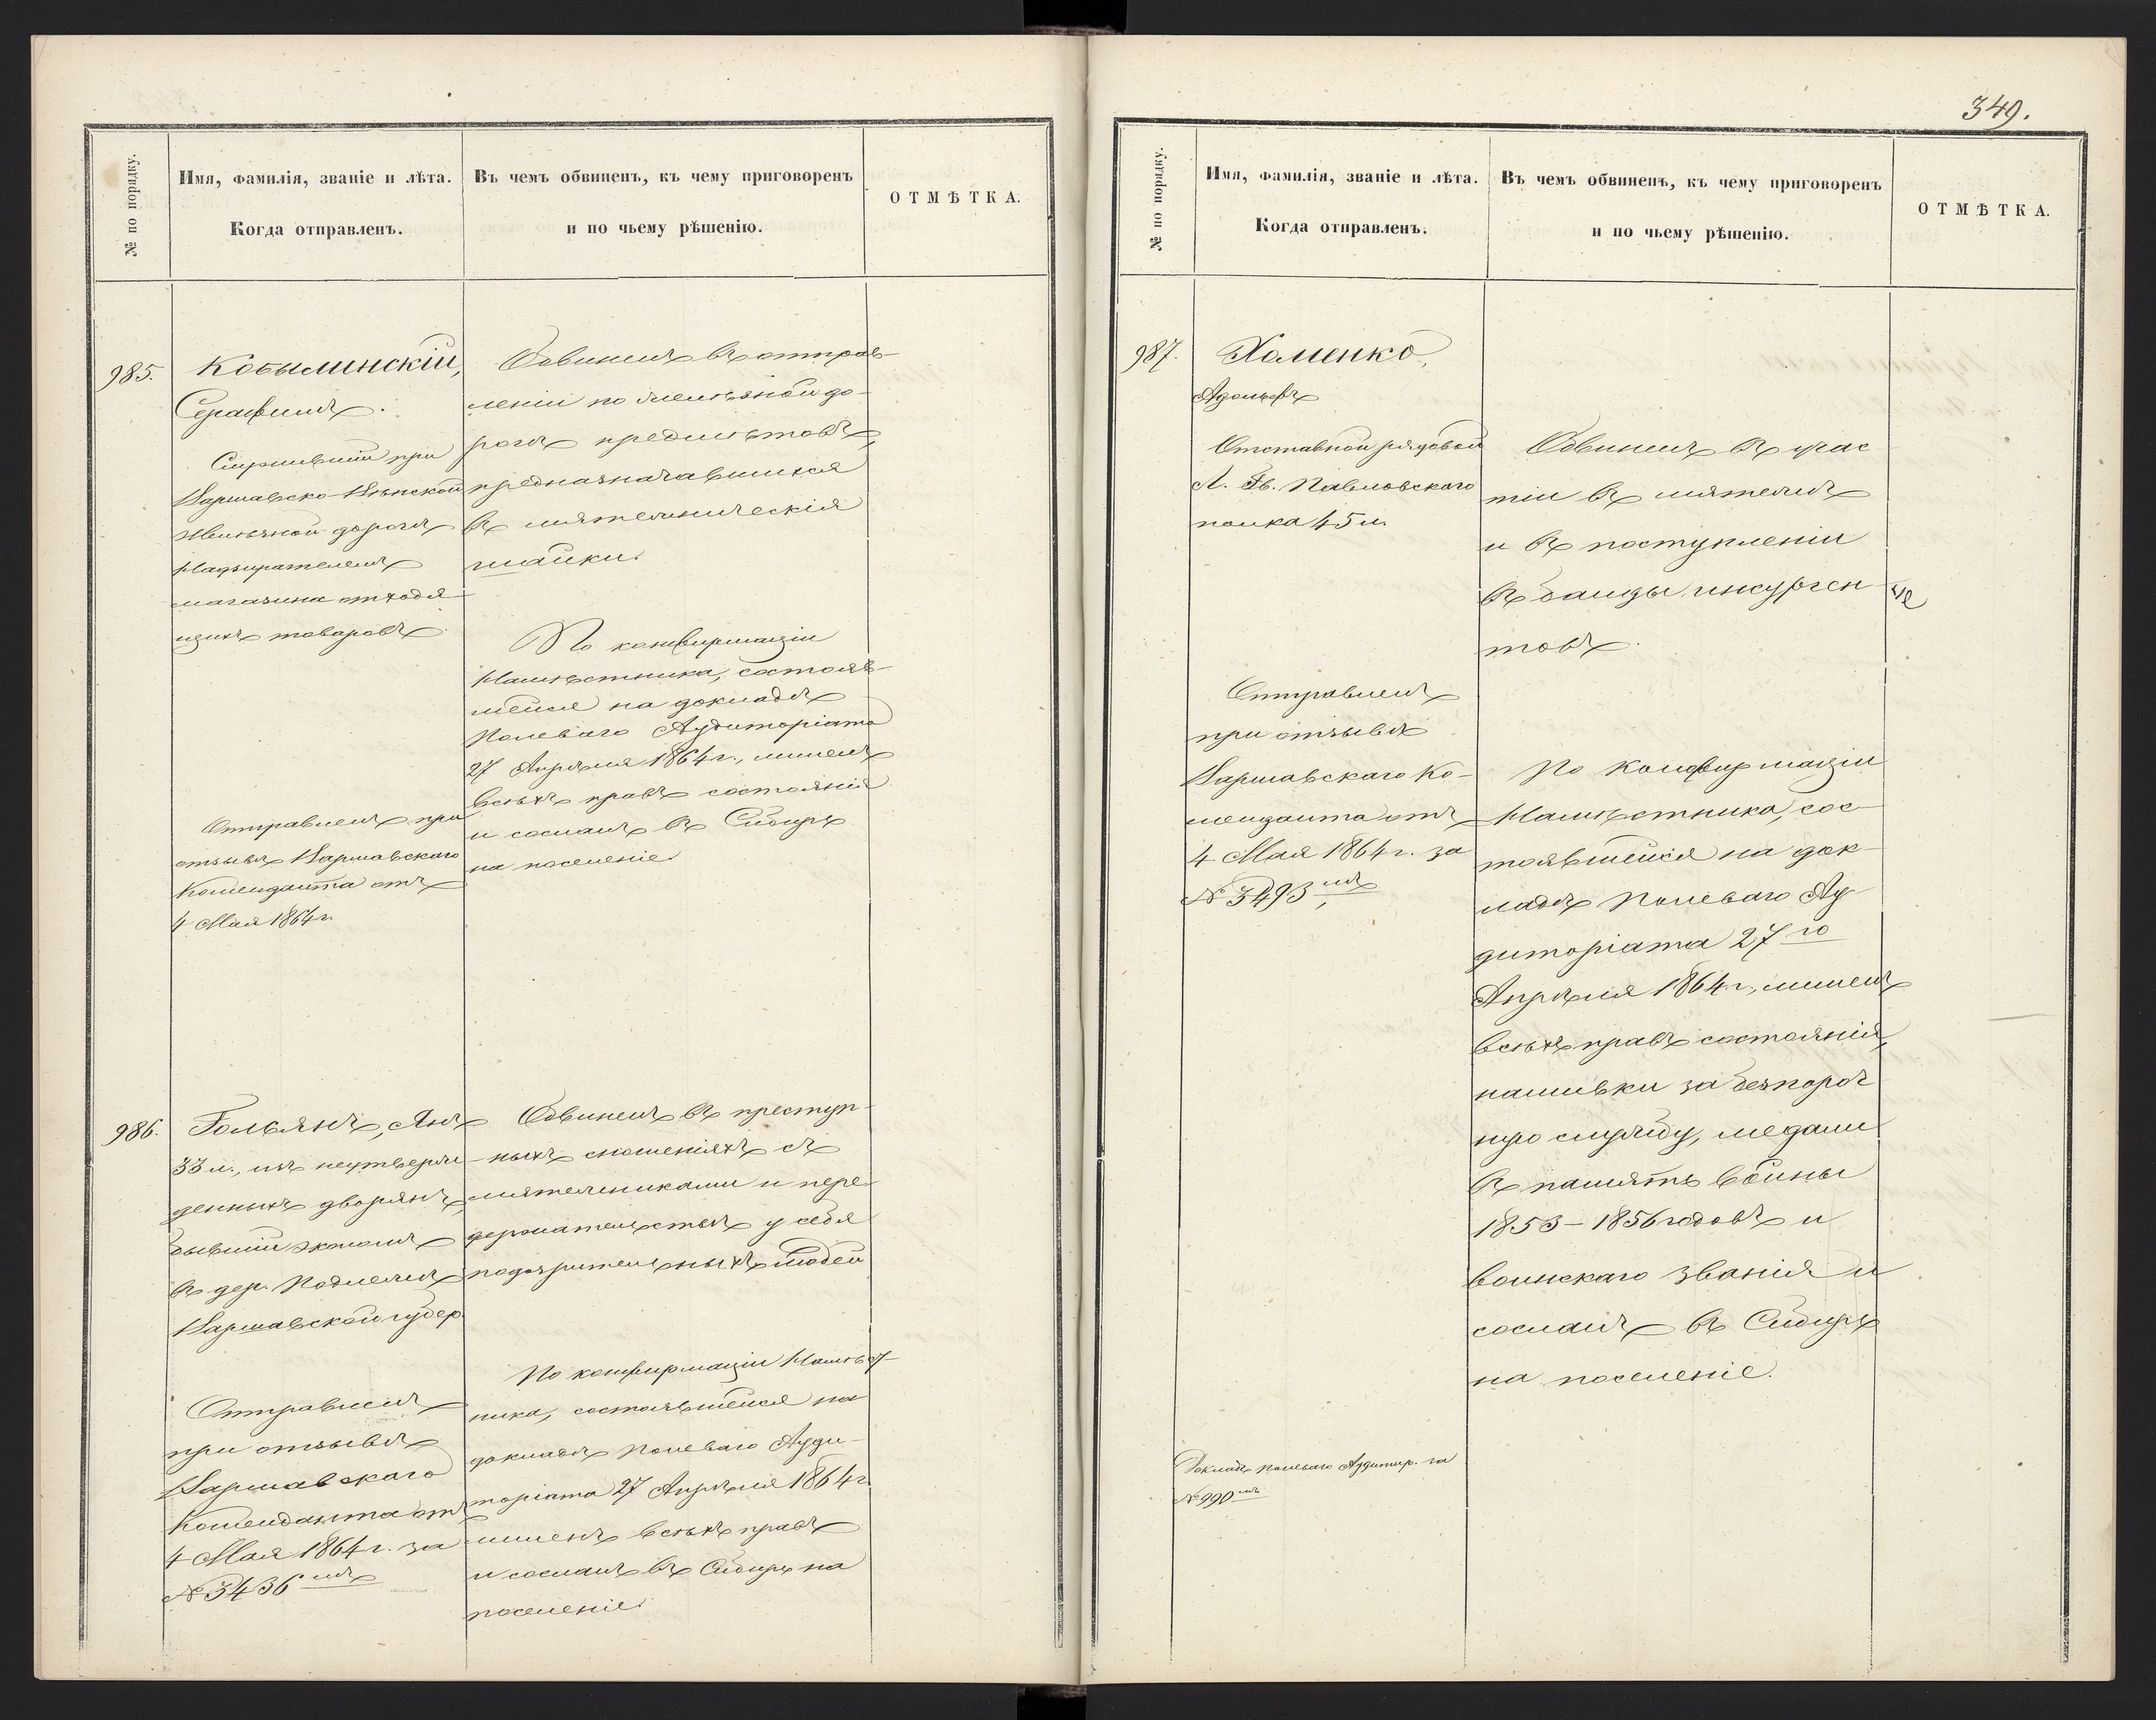 349.
№ по порядку.
Имя, фамилія, званіе и лѣта.
Когда отправленъ.
Въ чемъ обвиненъ, къ чему приговоренъ
и по чьему рѣшенію.
ОТМѢТКА.
985.
Кобылинскій,
Серафимъ.
Служившій при
Варшавско-Вѣнской
желѣзной дорогѣ
Надзирателемъ
магазина отходя-
щихъ товаровъ
Отправленъ при
отзывѣ Варшавскаго
Коменданта отъ
4 Мая 1864 г.
Обвиненъ въ отправ-
леніи по желѣзной до-
рогѣ предметовъ,
предназначавшихся
въ мятежническія
шайки.
По конфирмаціи
Намѣстника, состояв-
шейся на докладѣ
Полеваго Аудиторіата
27 Апрѣля 1864 г., лишенъ
всѣхъ правъ состоянія
и сосланъ въ Сибирь
на поселеніе.
986.
Гольянъ, Янъ
33 л., изъ неутверж-
денныхъ дворянъ,
бывшій экономъ
въ дер.
Варшавской губер.
Отправленъ
при отзывѣ
Варшавскаго
Коменданта отъ
4 Мая 1864 г. за
№ 3436 мъ
Обвиненъ въ преступ-
ныхъ сношеніяхъ съ
мятежниками и пере-
держательствѣ у себя
подозрительныхъ людей
По конфирмаціи Намѣст-
ника, состоявшейся на
докладѣ Полеваго Ауди-
торіата 27 Апрѣля 1864 г.
лишенъ всѣхъ правъ
и сосланъ въ Сибирь на
поселеніе.
№ по порядку.
Имя, фамилія, званіе и лѣта.
Когда отправленъ.
Въ чемъ обвиненъ, къ чему приговоренъ
и по чьему рѣшенію.
ОТМѢТКА.
987.
Хоменко,
Адольфъ
Отставной рядовой
Л. Гв. Павловскаго
полка 45 л.
Отправленъ
при отзывѣ
Варшавскаго Ко-
менданта отъ
4 Мая 1864 г. за
№ 3493 мъ
Докладъ Полеваго Аудитор. за
№ 990 мъ
Обвиненъ въ учас
тіи въ мятежѣ
и въ поступленіи
въ банды инсурген
товъ.
По конфирмаціи
Намѣстника, сос-
тоявшейся на док-
ладѣ Полеваго Ау-
диторіата 27 го
Апрѣля 1864 г., лишенъ
всѣхъ правъ состоянія,
нашивки за безпороч
ную службу, медали
въ память войны
1853–1856 годовъ и
воинскаго званія и
сосланъ въ Сибирь
на поселеніе.